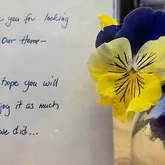 you for looking
Our Home-
hope you will
joy it as much
we did...